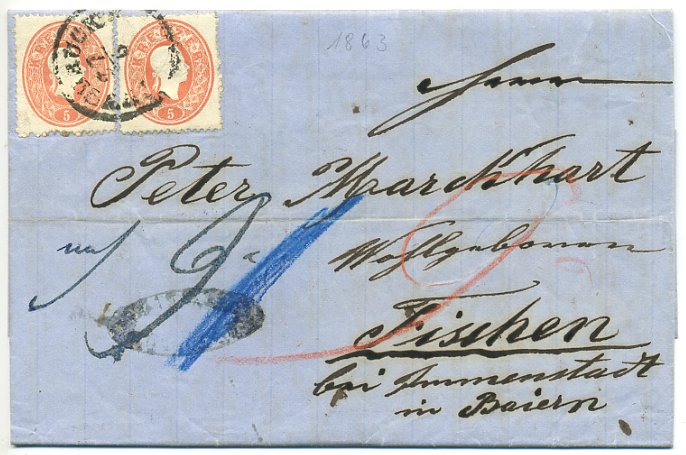 1863
5 5
Herrn
Peter Marckhart
Wohlgeboren
Fischen
bei Immenstadt
in Baiern
9